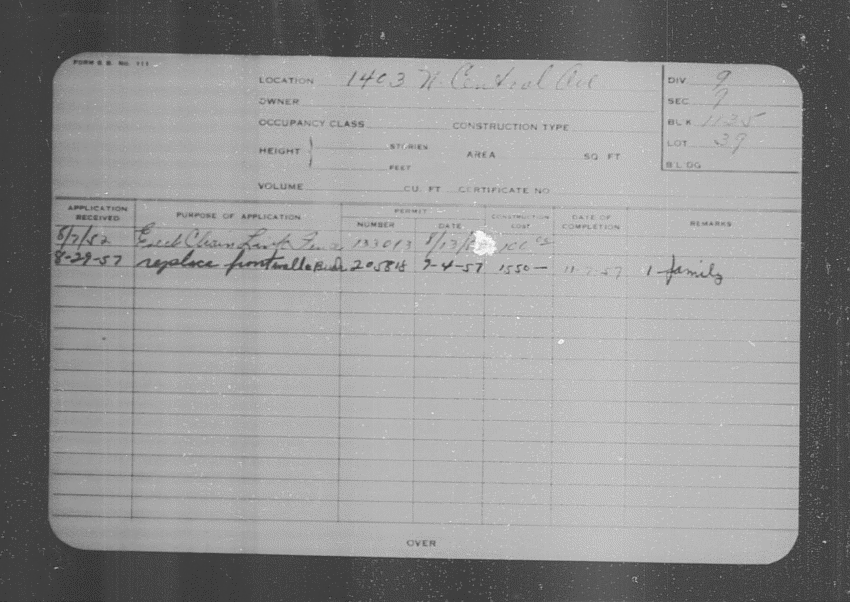 FORM S. B. No. 111
LOCATION 1403 N. Central Ave
OWNER
OCCUPANCY CLASS CONSTRUCTION TYPE
HEIGHT STORIES FEET AREA SQ FT
VOLUME CU. FT CERTIFICATE NO
DIV 9
SEC 9
BLK 1135
LOT 39
BLDG
APPLICATION RECEIVED PURPOSE OF APPLICATION PERMIT NUMBER DATE CONSTRUCTION COST DATE OF COMPLETION REMARKS
8/7/52 Erect Chain Link Fence 133013 8/13/ 100 00
8-29-57 replace front wall 205818 9-4-57 1550— 11-7-57 1-family
OVER